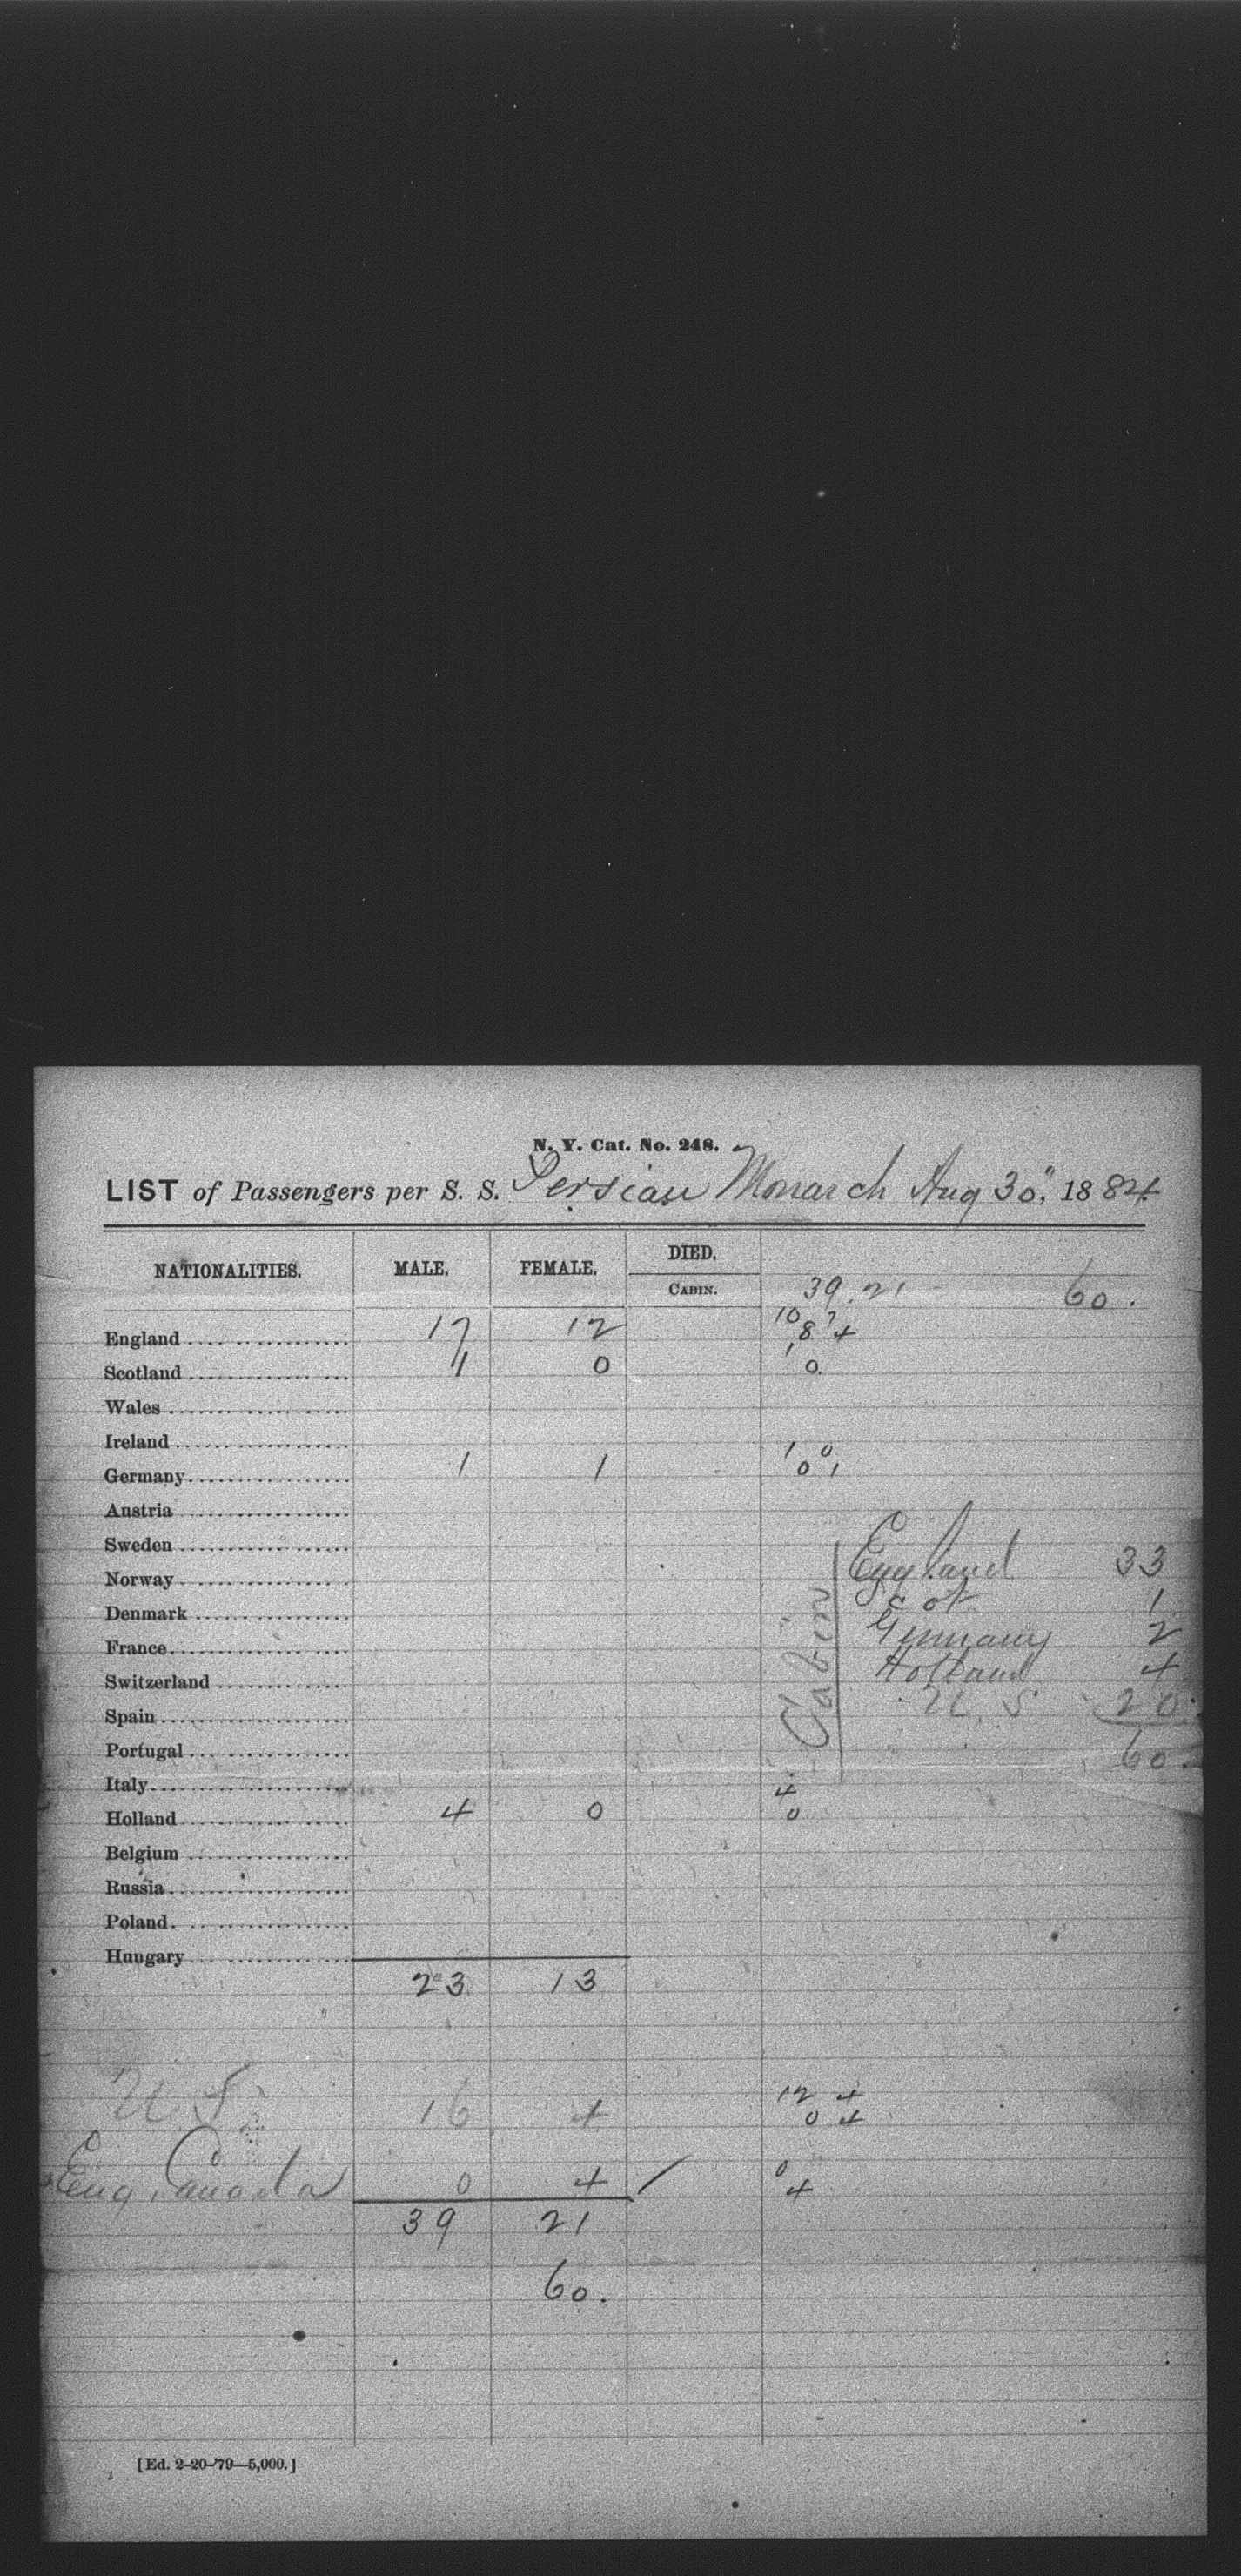 N. Y. Cat. No. 248.
LIST of Passengers per S. S. Persian Monarch Aug 30", 1884
NATIONALITIES. MALE. FEMALE. DIED.
CABIN. 39. 21 60.
10 7
England 17 12 8 4
1
Scotland 1 0 0.
Wales
Ireland
1 0
Germany 1 1 0 1
Austria
Sweden
England 33
Norway
Scot 1
Denmark
Germany 2
France
Holland 4
Switzerland
U. S 20.
Spain
Cabin
Portugal
60.
Italy
4.
Holland 4 0 0
Belgium
Russia
Poland
Hungary
23 13
12 4
U. S. 16 4 0 4
0
Eng. Canada 0 4 / 4
39 21
60.
[Ed. 2-20-'79—5,000.]